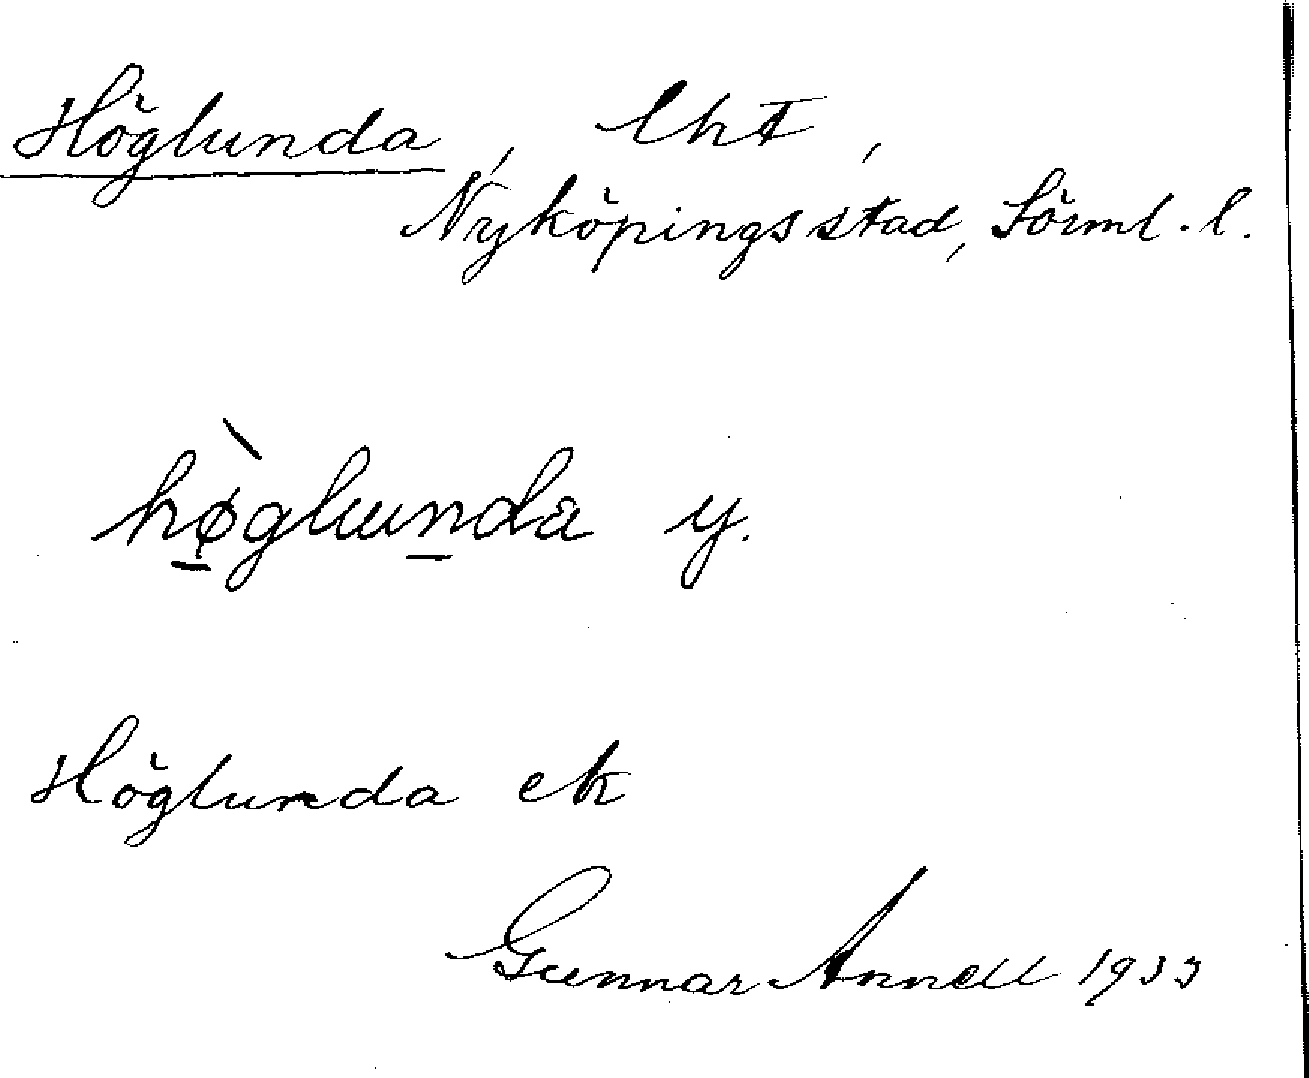 Höglunda, lht,
Nyköpings stad, Sörml. l.
hø̀glunda y.
Höglunda ek
Gunnar Annell 1933